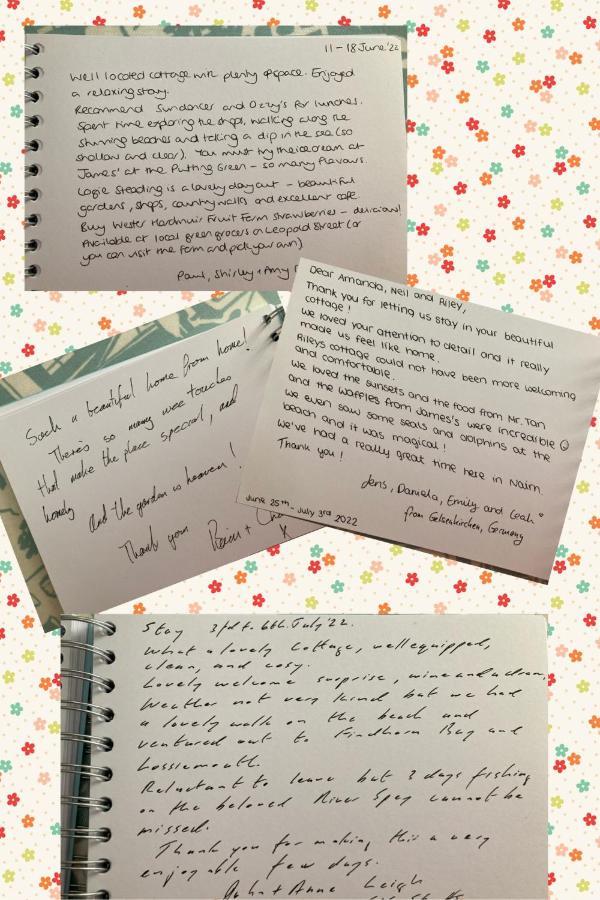 11 - 18 June '22
Well located cottage with plenty of space. Enjoyed
a relaxing stay.
Recommend Sundancer and Ozzy's for lunches.
Spent time exploring the shops, walking along the
stunning beaches and taking a dip in the sea (so
shallow and clear). You must try the ice cream at
James' at the Putting Green - so many flavours.
Logie Steading is a lovely day out - beautiful
gardens, shops, country walks and excellent cafe.
Buy Wester Hardmuir Fruit Farm strawberries - delicious!
Available at local green grocers on Leopold Street (or
you can visit the farm and pick your own)
Paul, Shirley + Amy
Such a beautiful home from home!
There's so many wee touches
that make the place special, and
homely
and the garden is heaven!
Thank you
X
Dear Amanda, Neil and Riley,
Thank you for letting us stay in your beautiful
cottage!
We loved your attention to detail and it really
made us feel like home.
Rileys cottage could not have been more welcoming
and comfortable.
We loved the sunsets and the food from Mr. Tan
and the waffles from James's were incredible ☺
We even saw some seals and dolphins at the
beach and it was magical!
We've had a really great time here in Nairn.
Thank you!
Jens, Daniela, Emily and Leah
from Gelsenkirchen, Germany
June 25th - July 3rd 2022
Stay 3rd to 6th July '22.
What a lovely cottage, well equipped,
clean, and cosy.
Lovely welcome surprise, wine and a dram,
Weather not very kind but we had
a lovely walk on the beach and
ventured out to Findhorn Bay and
Lossiemouth.
Reluctant to leave but 3 days fishing
on the beloved River Spey cannot be
missed.
Thank you for making this a very
enjoyable few days.
John + Anne Leigh